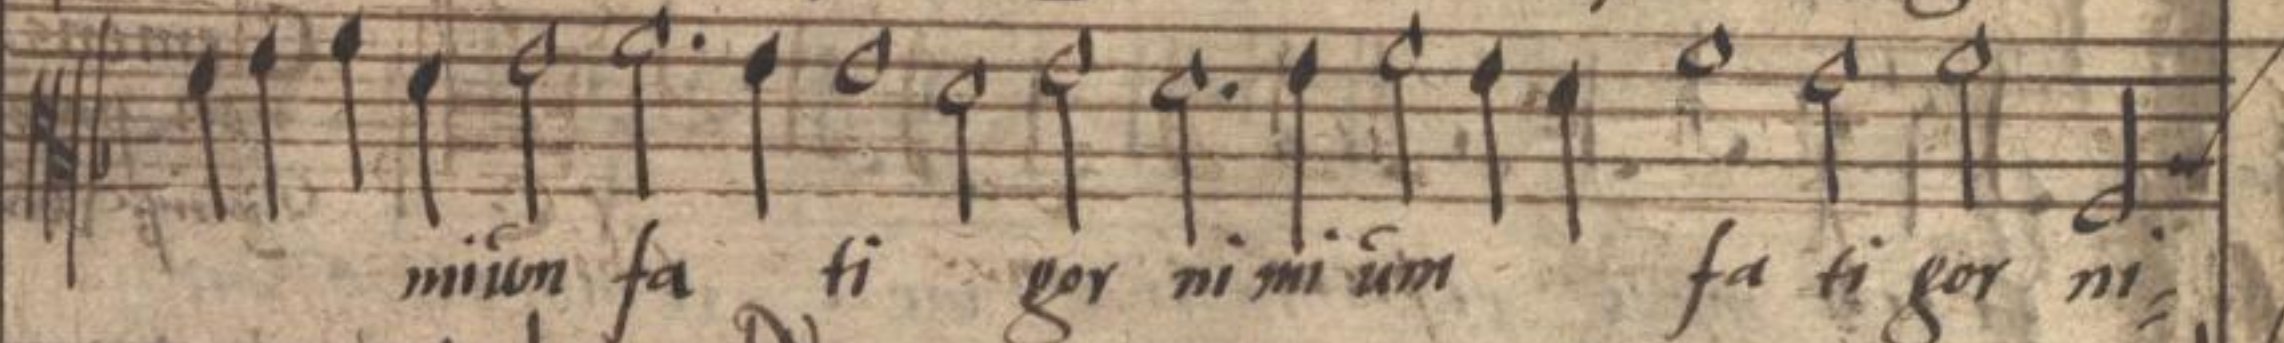 miũm fa ti gor ni mi ũm fa ti gor ni